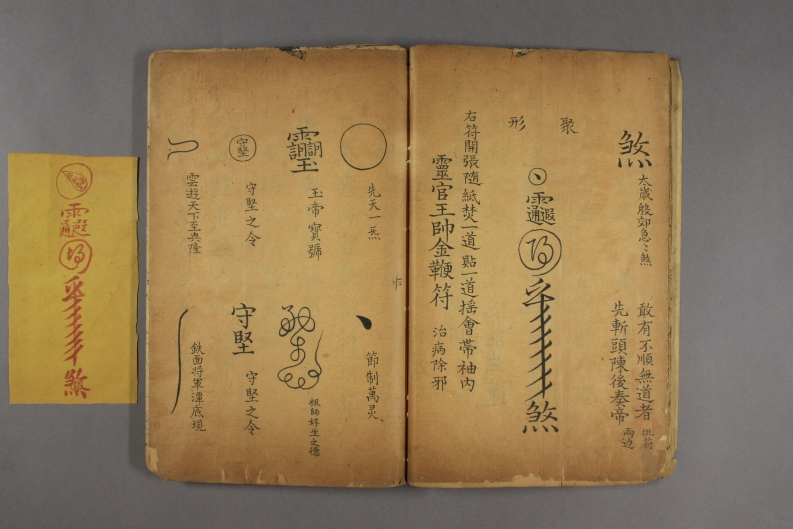 煞
太歲殷郊急々煞
敢有不順無道者
先斬頭陳後奏帝
批符
兩边
聚形
煞
右符開張隨紙焚一道點一道搖會帶袖內
靈官王帥金鞭符 治病除邪
先天一炁
節制萬灵
玉帝寶號
祖師好生之德
守堅
守堅之令
守堅
守堅之令
雲遊天下至典隆
鉄面将軍渾底現
煞